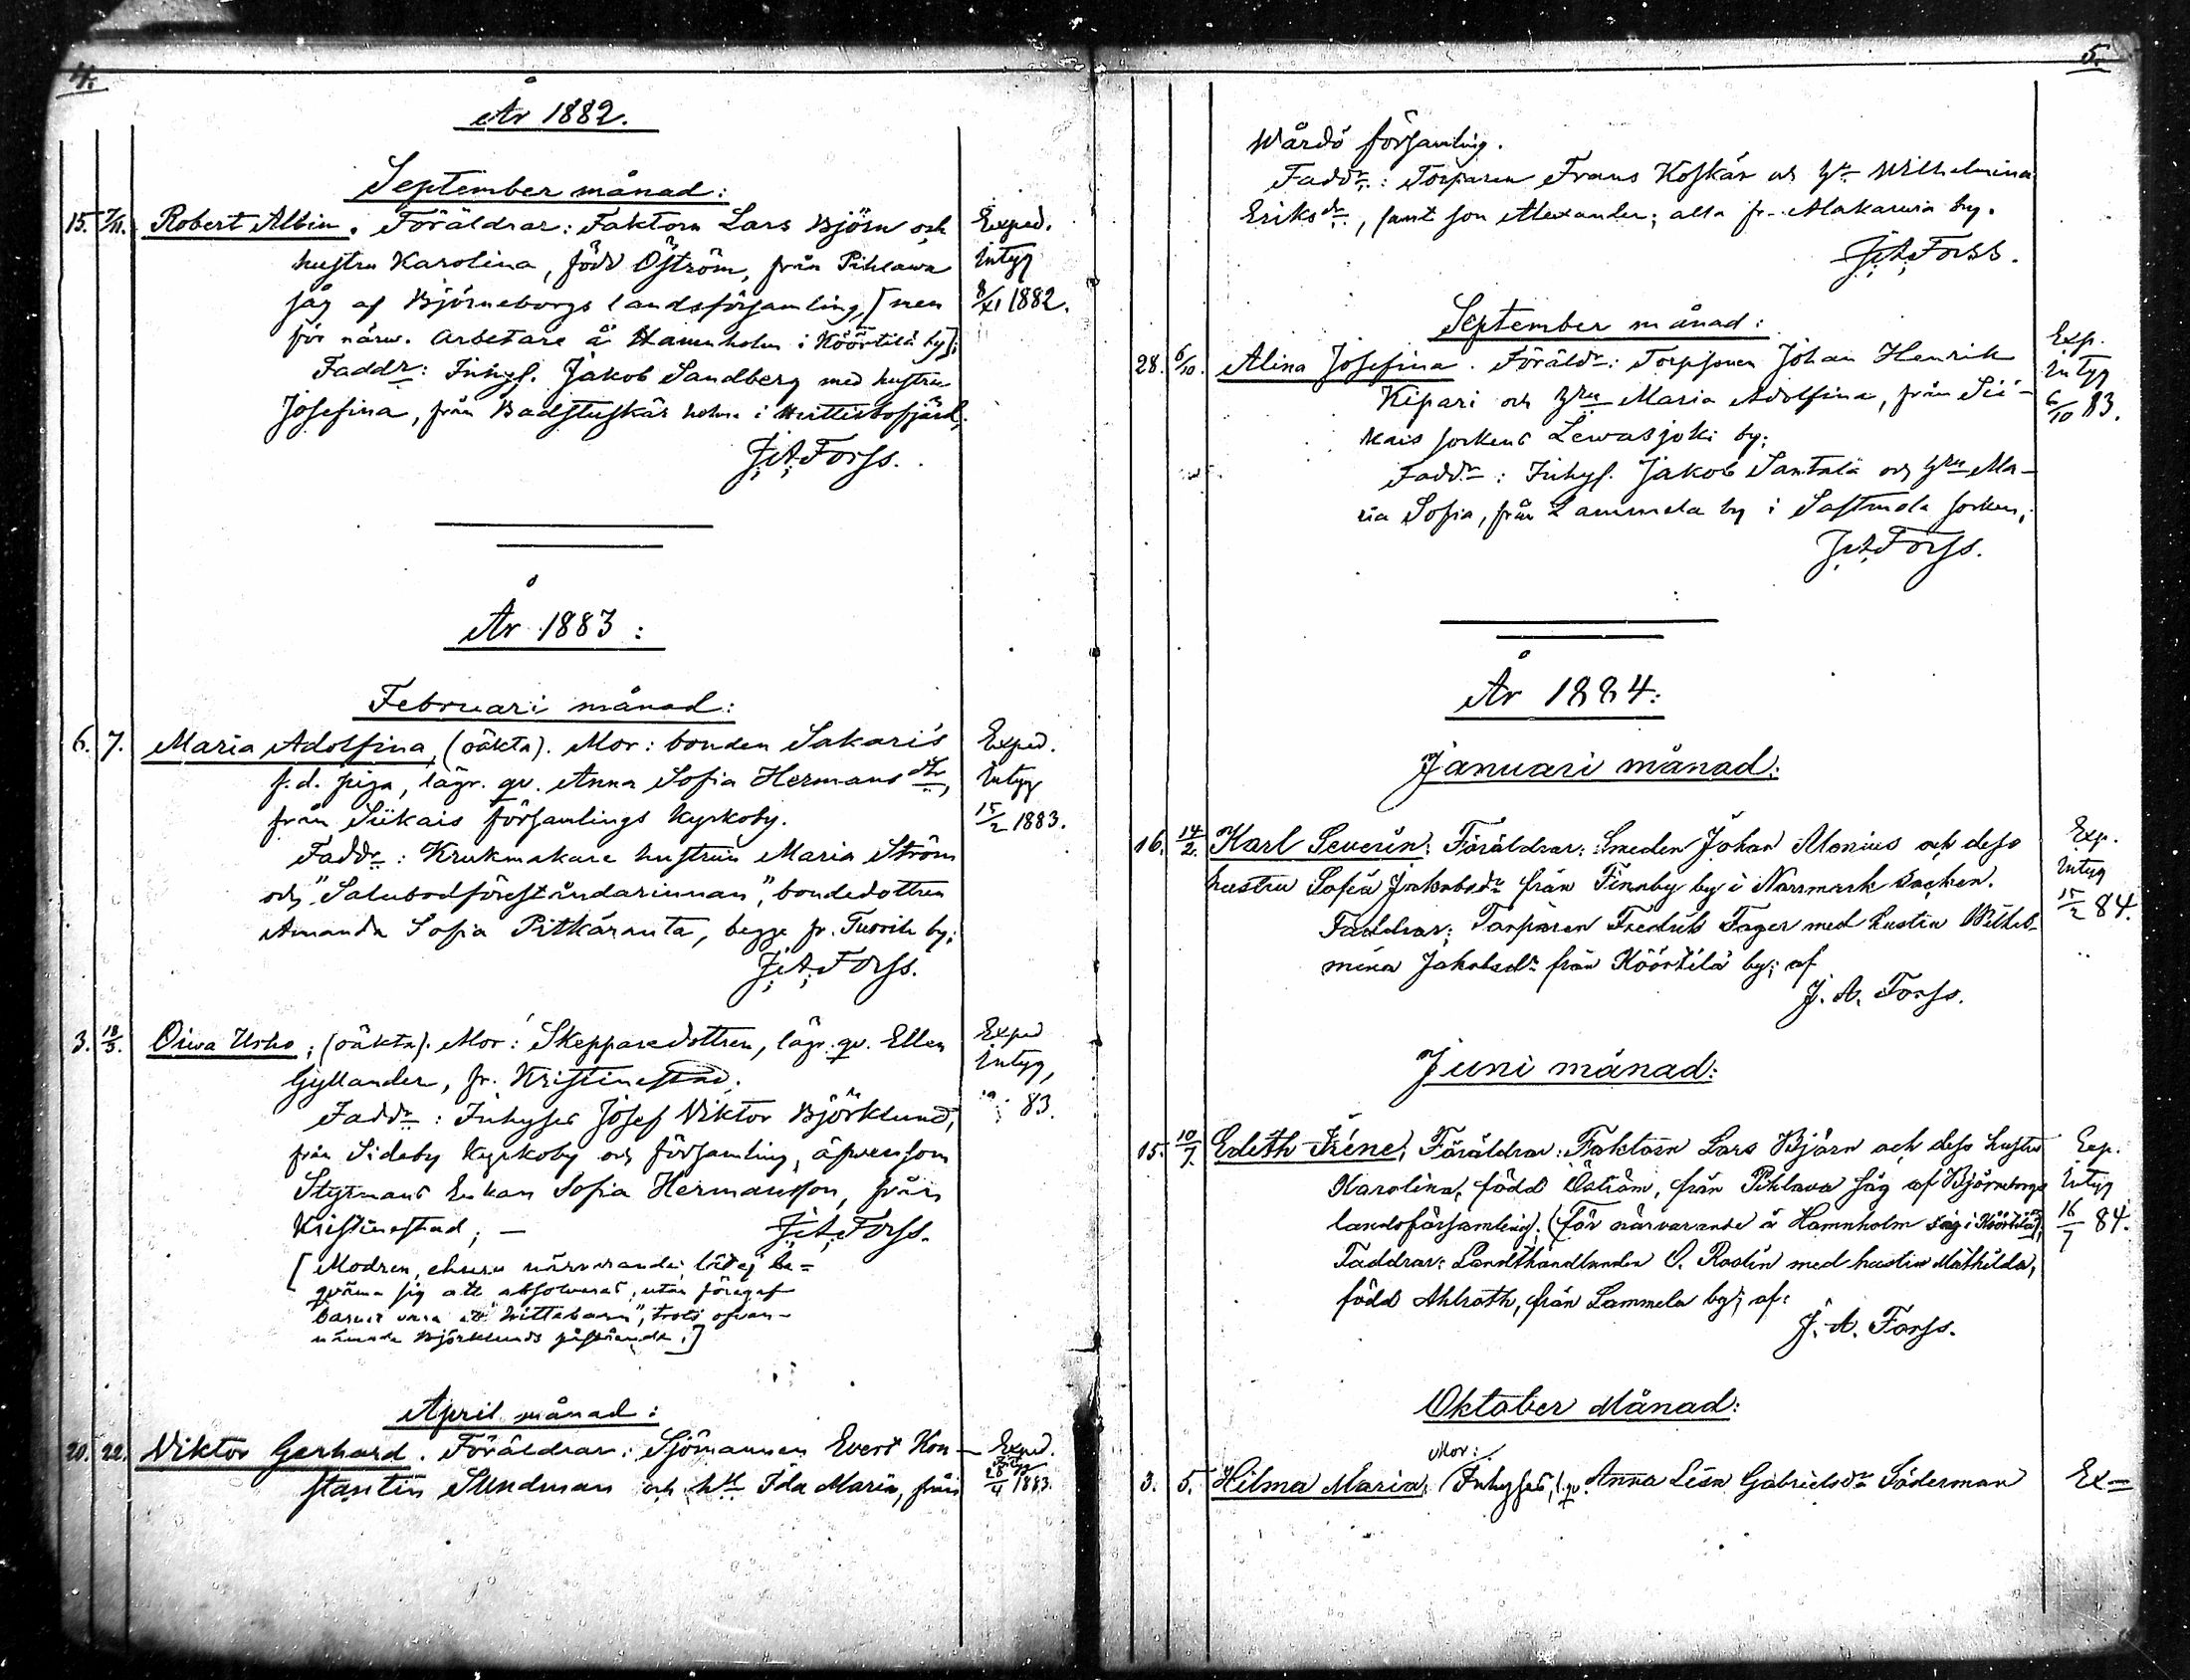 4.
År 1882.
September månad:
15. 7/11. Robert Albin. Föräldrar: Faktorn Lars Björn och Exped.
hustru Karolina, född Öström, från Pihlawa Intyg
såg af Björneborgs landsförsamling, [men 8/XI 1882.
för närw. arbetare å Hamnholm i Köörtilä by];
Faddr: Inhys. Jakob Sandberg med hustru
Josefina, från Badstuskär holme i Wittisbofjärd;
J. A. Forss.
År 1883:
Februari månad:
6. 7. Maria Adolfina, (oäkta). Mor: bonden Sakaris Exped.
f.d. piga, lägr. qv. Anna Sofia Hermansdtr, Intyg
från Siikais församlings kyrkoby. 15/2 1883.
Faddr: Krukmakare hustrun Maria Ström
och "Salubodföreståndarinnan", bondedottren
Amanda Sofia Pitkäranta, begge fr. Tuorila by;
J. A. Forss.
3. 18/3. Oiwa Urho; (oäkta). Mor: Skepparedottren, lägr. qv. Ellen Exped
Gyllander, fr. Kristinestad. Intyg,
Faddr: Inhyses Josef Viktor Björklund, 83.
från Sideby kyrkoby och församling, äfvensom
Styrmans Enkan Sofia Hermansson, från
Kristinestad; — J. A. Forss.
[Modren, ehuru närvarande, lät ej be=
qväma sig att absolveras, utan föregaf
barnet vara ett "hittebarn", trots ofvan-
nämnde Björklunds påstående.]
April månad:
20. 22. Viktor Gerhard. Föräldrar: Sjömannen Evert Kon- Exped. Intyg
stantin Sundman och hu Ida Maria, från 28/4 1883.
5.
Wårdö församling.
Faddr: Torparen Frans Koskär och hu Wilhelmina
Eriksdr, samt son Alexander; alla fr. Alakarwia by.
J. A. Forss.
September månad:
28. 6/10. Alina Josefina. Föräldr: Torpsonen Johan Henrik Exp.
Kipari och hru Maria Adolfina, från Sii- Intyg
kais sockens Lewasjoki by; 6/10 83.
Faddr: Inhys. Jakob Santala och hru Ma-
ria Sofia, från Lammela by i Sastmola socken;
J. A. Forss.
År 1884:
Januari månad:
16. 14/2. Karl Severin. Föräldrar: Smeden Johan Alonius och dess Exp.
hustru Sofia Jakobsdr från Finnby by i Norrmark socken. Intyg
Faddrar: Torparen Fredrik Fager med hustru Wilhel- 15/2 84.
mina Jakobsdr från Köörtilä by; af
J. A. Forss.
Juni månad:
15. 10/7. Edith Iréne; Föräldrar: Faktorn Lars Björn och dess hustru Exp.
Karolina, född Öström, från Pihlava såg af Björneborgs Intyg
landsförsamling; (för närvarande å Hamnholm såg i Köörtilä); 16/7 84.
Faddrar: Landthandlanden O. Roslin med hustru Mathilda,
född Ahlroth, från Lammela by; af:
J. A. Forss.
Oktober Månad:
Mor:
3. 5. Hilma Maria, Inhyses, l. qv. Anna Lisa Gabrielsdr Söderman Ex=